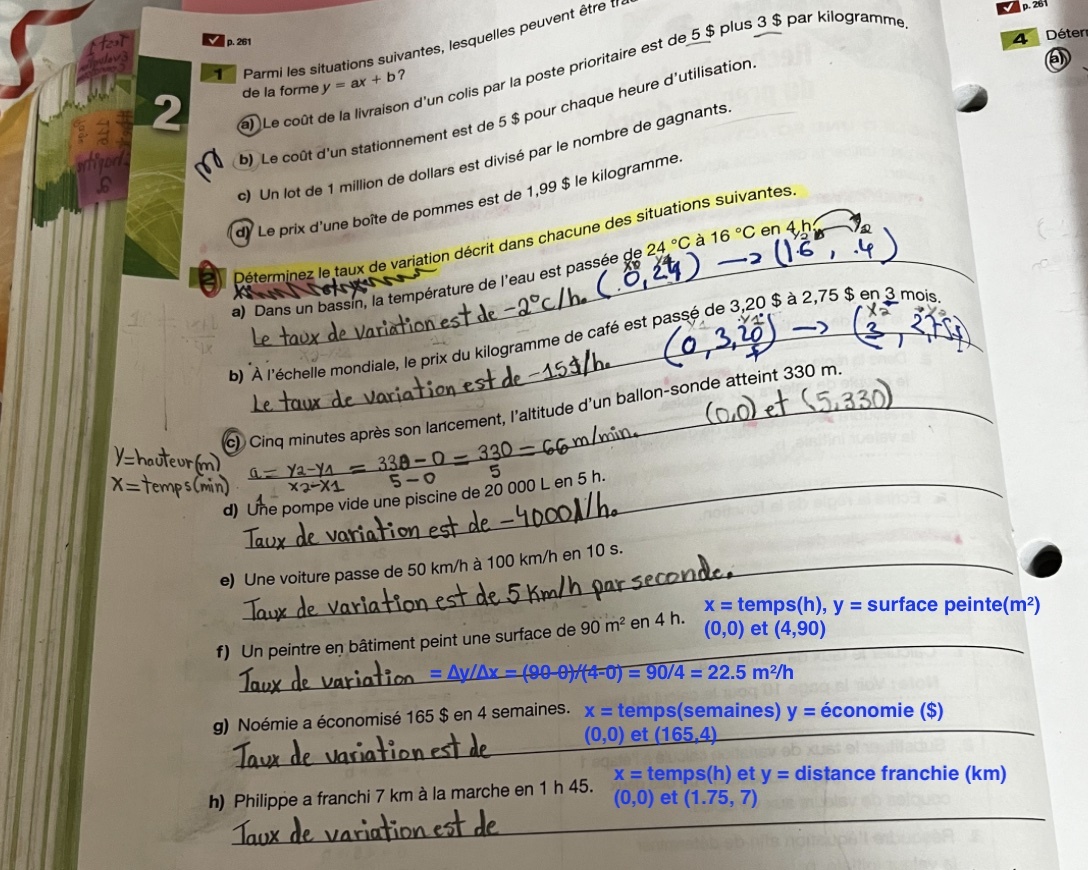 p. 261
p. 261
2
1 Parmi les situations suivantes, lesquelles peuvent être
de la forme y = ax + b?
a) Le coût de la livraison d'un colis par la poste prioritaire est de 5 $ plus 3 $ par kilogramme.
b) Le coût d'un stationnement est de 5 $ pour chaque heure d'utilisation.
c) Un lot de 1 million de dollars est divisé par le nombre de gagnants.
d) Le prix d'une boîte de pommes est de 1,99 $ le kilogramme.
2 Déterminez le taux de variation décrit dans chacune des situations suivantes.
a) Dans un bassin, la température de l'eau est passée de 24 °C à 16 °C en 4 h.
Le taux de variation est de -2°C/h. (0, 24) → (16, 4)
b) À l'échelle mondiale, le prix du kilogramme de café est passé de 3,20 $ à 2,75 $ en 3 mois.
Le taux de variation est de -15$/h. (0, 3,20) → (3, 2,75$)
c) Cinq minutes après son lancement, l'altitude d'un ballon-sonde atteint 330 m.
(0,0) et (5,330)
y=hauteur(m)
x=temps(min)
a = y2-y1/x2-x1 = 330-0/5-0 = 330/5 = 66 m/min.
d) Une pompe vide une piscine de 20 000 L en 5 h.
Taux de variation est de -4000l/h.
e) Une voiture passe de 50 km/h à 100 km/h en 10 s.
Taux de variation est de 5 Km/h par seconde.
x = temps(h), y = surface peinte(m²)
f) Un peintre en bâtiment peint une surface de 90 m² en 4 h. (0,0) et (4,90)
Taux de variation = Δy/Δx = (90-0)/(4-0) = 90/4 = 22.5 m²/h
g) Noémie a économisé 165 $ en 4 semaines. x = temps(semaines) y = économie ($)
(0,0) et (165,4)
Taux de variation est de
x = temps(h) et y = distance franchie (km)
h) Philippe a franchi 7 km à la marche en 1 h 45. (0,0) et (1.75, 7)
Taux de variation est de
4 Déter
a)